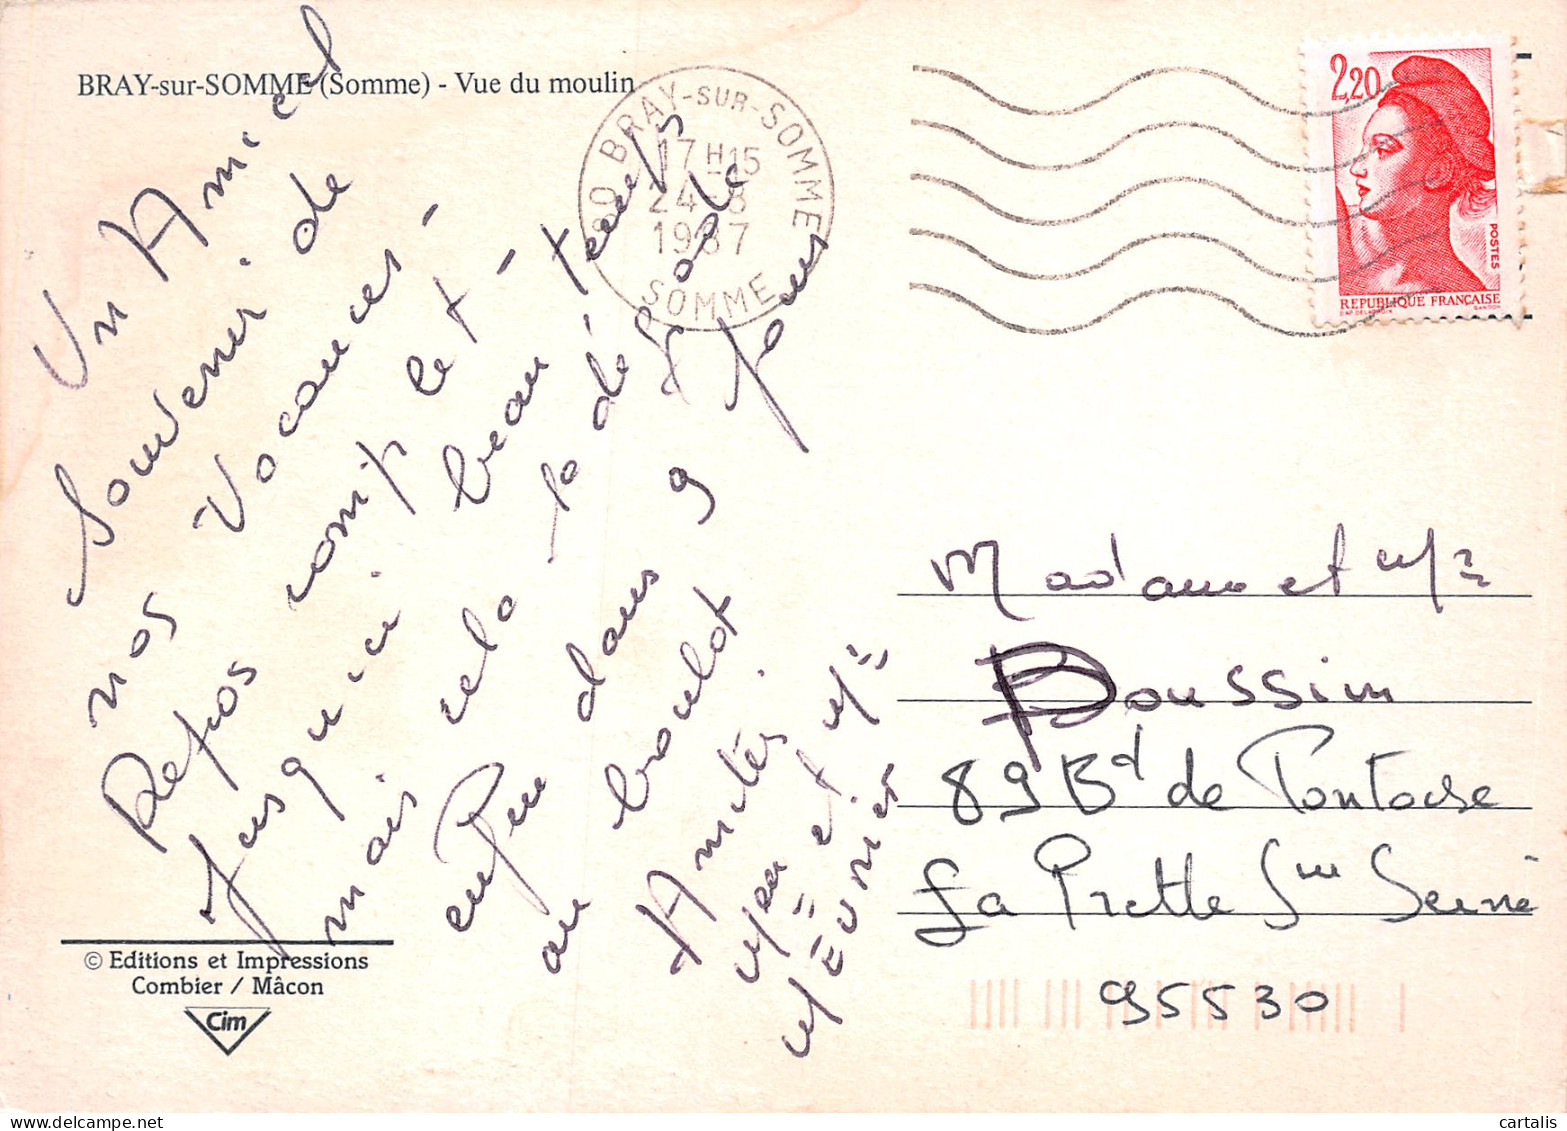 BRAY-sur-SOMME (Somme) - Vue du moulin
80 BRAY-SUR-SOMME
17 H 15
24-8
1987
SOMME
2,20
POSTES
REPUBLIQUE FRANÇAISE
GANDON
Un Amical
Souvenir de
nos Vacances -
Repos complet -
Jusqu'ici beau temps
mais cela se dégrade
enfin dans 9 jours
au boulot
Amitiés
Mme et Mr
Madame et Mr
Poussin
89 Bd de Pontoise
La Frette S/ Seine
95530
© Editions et Impressions
Combier / Mâcon
Cim
cartalis